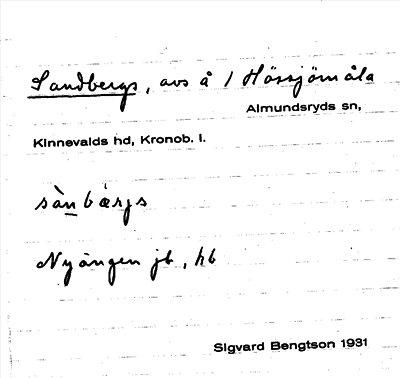 Sandbergs, avs å 1 Hössjömåla
Almundsryds sn,
Kinnevalds hd, Kronob. l.
sànbærjs
Nyängen jb, hb
Sigvard Bengtson 1931